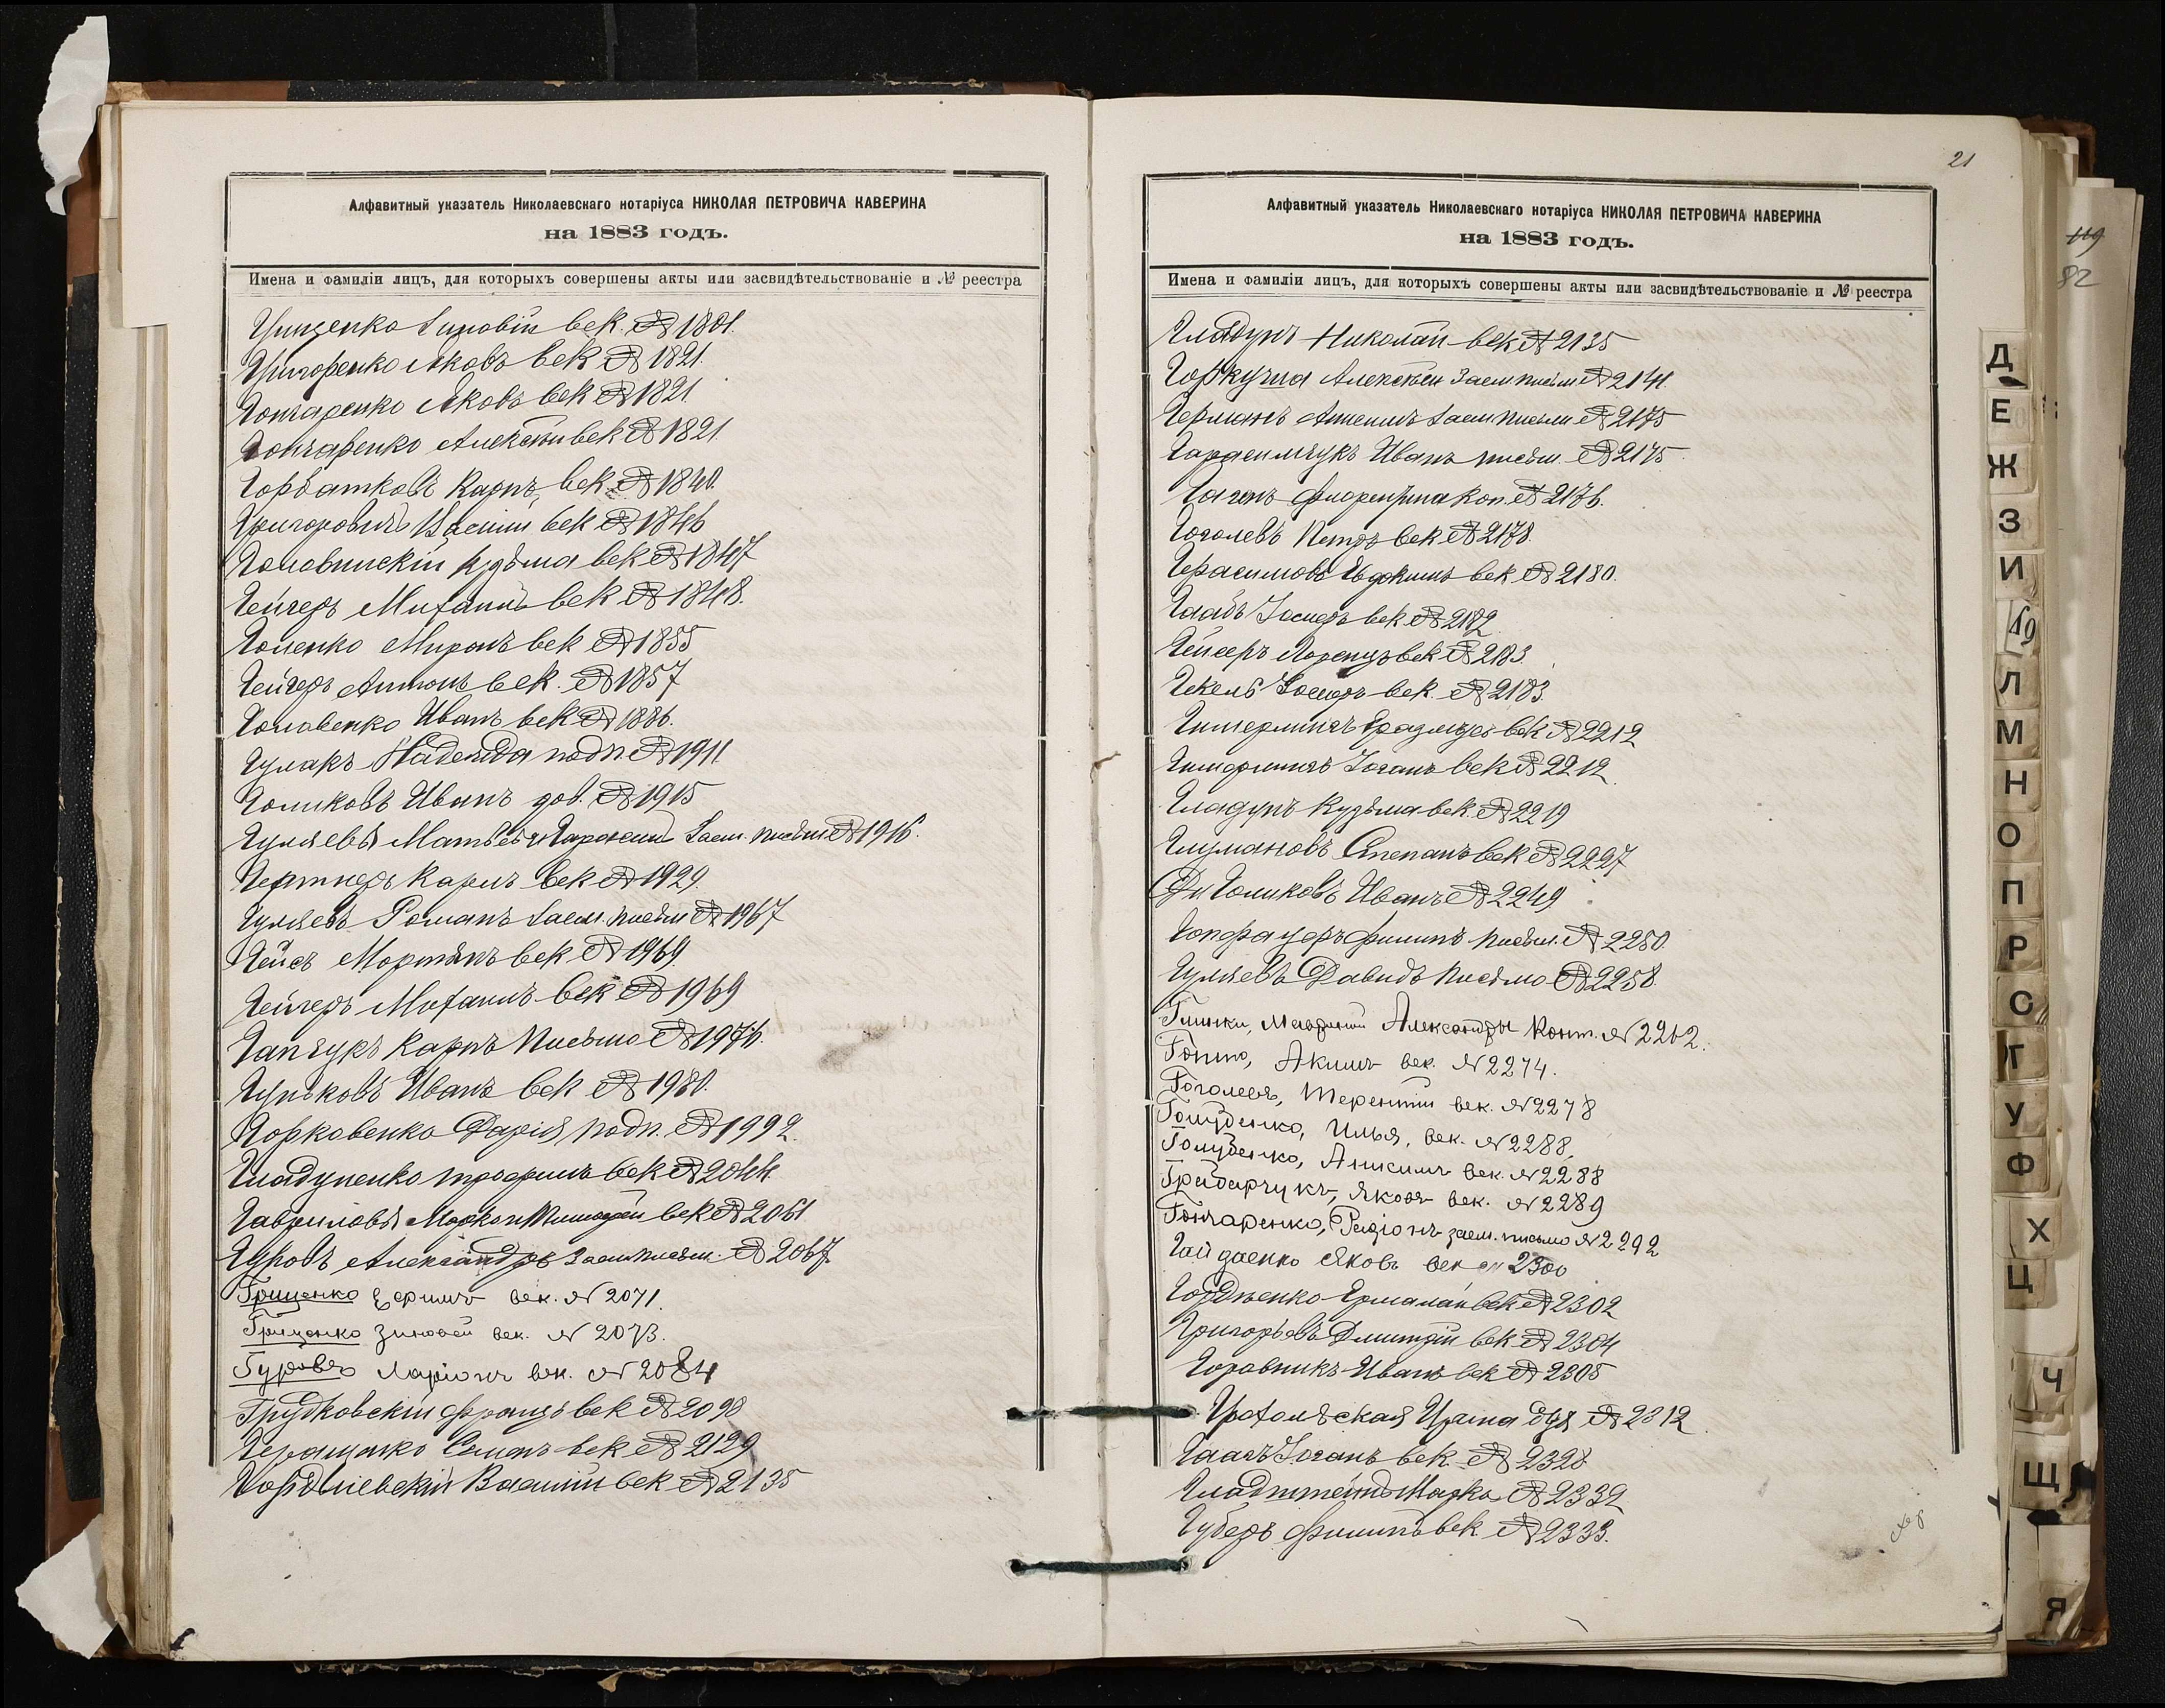 Алфавитный указатель Николаевскаго нотаріуса НИКОЛАЯ ПЕТРОВИЧА КАВЕРИНА
на 1883 годъ.
Имена и фамиліи лицъ, для которыхъ совершены акты или засвидѣтельствованіе и № реестра
Гриценко Зиновій век. № 1801.
Григоренко Яковъ век № 1821.
Гончаренко Яковъ век № 1821
Гончаренко Алексѣй век № 1821.
Горбатковъ Карпъ век № 1840.
Григоровичъ Василій век № 1846
Головинскій Кузьма век № 1847
Гейгеръ Михаилъ век № 1848.
Гоненко Миронъ век № 1855
Гейгеръ Антонъ век. № 1857
Головенко Иванъ век № 1886.
Гулакъ Надежда подп. № 1911
Голиковъ Иванъ дов. № 1915
Гуляевы Матвѣй и заем. письм № 1916.
Гертнеръ Карлъ век № 1929.
Гуляевъ Романъ заем. письм № 1967
Гейсъ Мартынъ век № 1969.
Гейгеръ Михаилъ век № 1969
Гапчукъ Карпъ Письмо № 1976.
Гуньковъ Иванъ век № 1980.
Горковенко Дарія подп. № 1992.
Гладуненко Трофимъ век № 2044.
Гавриловы Марко и Тимофей век № 2061
Гуровъ Александръ Заем письм. № 2067.
Гриценко Ефимъ век. № 2071.
Гриценко Зиновій век. № 2073.
Гуровъ Ларіонъ век. № 2084
Грудковскій Францъ век № 2098
Геращенко Семенъ век № 2129
Гордліевскій Василій век № 2135
21
Алфавитный указатель Николаевскаго нотаріуса НИКОЛАЯ ПЕТРОВИЧА КАВЕРИНА
на 1883 годъ.
Имена и фамиліи лицъ, для которыхъ совершены акты или засвидѣтельствованіе и № реестра
Гладунъ Николай век № 2135
Горкуша Алексѣй Заем письм № 2141.
Германъ Заем. письм № 2175
Гарасимчукъ Иванъ письм. № 2175
Гагенъ Флорентина Коп. № 2176.
Гоголевъ Петръ век № 2178.
Герасимовъ Евдокимъ век № 2180.
Гаабъ Іосифъ век № 2182
Гейсеръ Лоренцъ век № 2183.
Гекель Іосифъ век. № 2183.
век № 2212
Іоганъ век № 2212
Гладунъ Кузьма век. № 2219
Глумановъ Степанъ век № 2227
Голиковъ Иванъ № 2249
Гопфауфъ Филипъ письм. № 2250.
Гуляевъ Давидъ Письмо № 2258.
Глинки, Маврикій Александръ Конт. № 2262.
Гоппо, Акимъ век. № 2274.
Гоголевъ, Терентій век. № 2278
Голубенко, Илья, век. № 2288,
Голубенко, Аникимъ век. № 2288
Грабарчукъ, Яковъ век. № 2289
Гончаренко, Радіонъ заем. письмо № 2292
Гайдаенко Яковъ век № 2300
Гордѣенко Ермалай век № 2302
Григорьевъ Дмитрій век № 2304
Горовникъ Иванъ век № 2305
№ 2312
Гаасъ Іоганъ век. № 2328
Гладштейнъ Марко № 2332
Губеръ Филипъ век. № 2333.
119
82
Д
Е
Ж
З
И
Л
М
Н
О
П
Р
С
Т
У
Ф
Х
Ц
Ч
Щ
Я